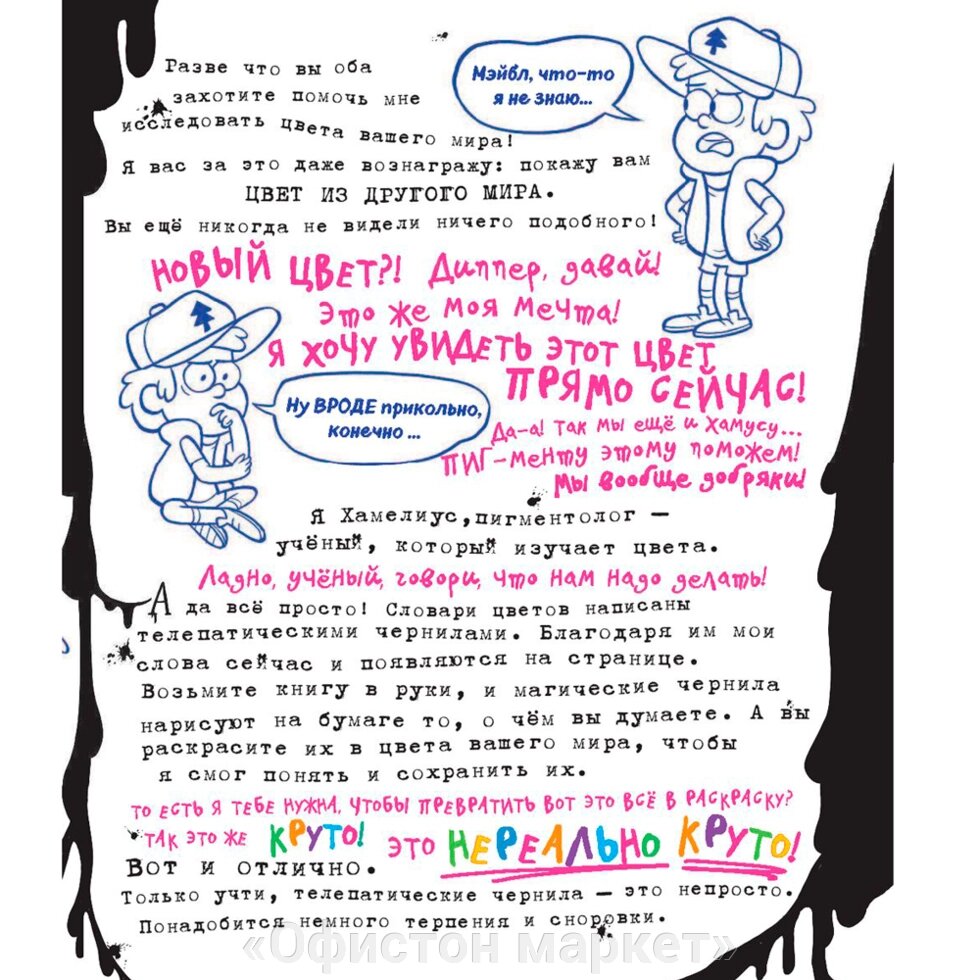 Разве что вы оба
захотите помочь мне
исследовать цвета вашего мира!
Мэйбл, что-то
я не знаю...
Я вас за это даже вознагражу: покажу вам
ЦВЕТ ИЗ ДРУГОГО МИРА.
Вы ещё никогда не видели ничего подобного!
НОВЫЙ ЦВЕТ?! Диппер, давай!
Это же моя мечта!
Я ХОЧУ УВИДЕТЬ ЭТОТ ЦВЕТ
ПРЯМО СЕЙЧАС!
Ну ВРОДЕ прикольно,
конечно ...
Да-а! Так мы ещё и Хамусу...
ПИГ-менту этому поможем!
Мы вообще добряки!
Я Хамелиус, пигментолог —
учёный, который изучает цвета.
Ладно, учёный, говори, что нам надо делать!
А да всё просто! Словари цветов написаны
телепатическими чернилами. Благодаря им мои
слова сейчас и появляются на странице.
Возьмите книгу в руки, и магические чернила
нарисуют на бумаге то, о чём вы думаете. А вы
раскрасите их в цвета вашего мира, чтобы
я смог понять и сохранить их.
ТО ЕСТЬ Я ТЕБЕ НУЖНА, ЧТОБЫ ПРЕВРАТИТЬ ВОТ ЭТО ВСЁ В РАСКРАСКУ?
ТАК ЭТО ЖЕ КРУТО! ЭТО НЕРЕАЛЬНО КРУТО!
Вот и отлично.
Только учти, телепатические чернила — это непросто.
Понадобится немного терпения и сноровки.
«Офистон маркет»